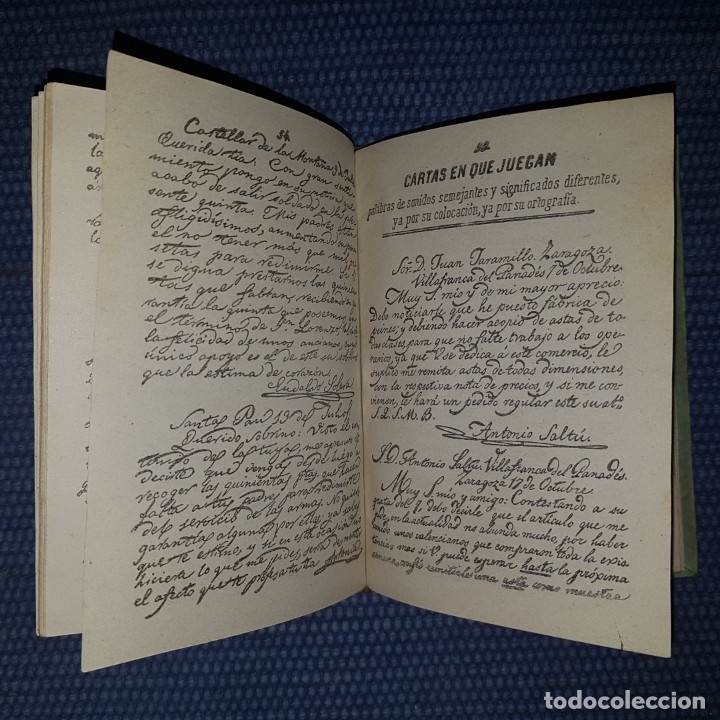 54
Castellar de las Montañas 3 de Julio
Querida tía: Con gran senti-
miento pongo en su noticia que
acabo de salir soldado en la pre-
sente quinta. Mis padres están
afligidísimos, aumentando su pena
el no tener más que mil pe-
setas para redimirme. Si V.
se digna prestarnos las quinien-
tas que faltan, recibiendo en ga-
rantía la quinta que poseemos en
el término de Sn. Lorenzo,
la felicidad de unos ancianos, cuyo
único apoyo es el de este su sobrino
que la estima de corazón.
Eudaldo
Santa Pau 19 de Julio
Querido Sobrino: Visto el con-
tenido de la tuya, me apresuro
decirte que vengas desde luego a
recoger las quinientas ptas. que hacen
falta a tus padres para redimirte
del servicio de las armas. No quiero
garantías algunas por ellas, ya sabes
que te estimo, y si en esta ocasión no
hiciera lo que me pides, sería desmentir
el afecto que te profesa tu tía
CARTAS EN QUE JUEGAN
palabras de sonidos semejantes y significados diferentes,
ya por su colocación, ya por su ortografía.
Sor. D. Juan Jaramillo. Zaragoza.
Villafranca del Panadés 7 de Octubre.
Muy S. mío y de mi mayor aprecio:
Debo noticiarle que he puesto fábrica de
pines; y debiendo hacer acopio de astas de to-
das clases, para que no falte trabajo a los ope-
rarios, ya que V. se dedica a este comercio, le
suplico me remita astas de todas dimensiones,
con la respetiva nota de precios, y si me con-
vienen, le hará un pedido regular este su ato.
S. Q. S. M. B.
Antonio Saltú.
S. D. Antonio Saltú. Villafranca del Panadés.
Zaragoza 17 de Octubre.
Muy S. mío y amigo: Contestando a su
grata del 7, debo decirle que el artículo que me
pide, en la actualidad no abunda mucho, por haber
venido unos valencianos que compraron toda la exis-
tencia; mas si V. puede esperar hasta la próxima
remitirle una asta como muestra
todocoleccion.net